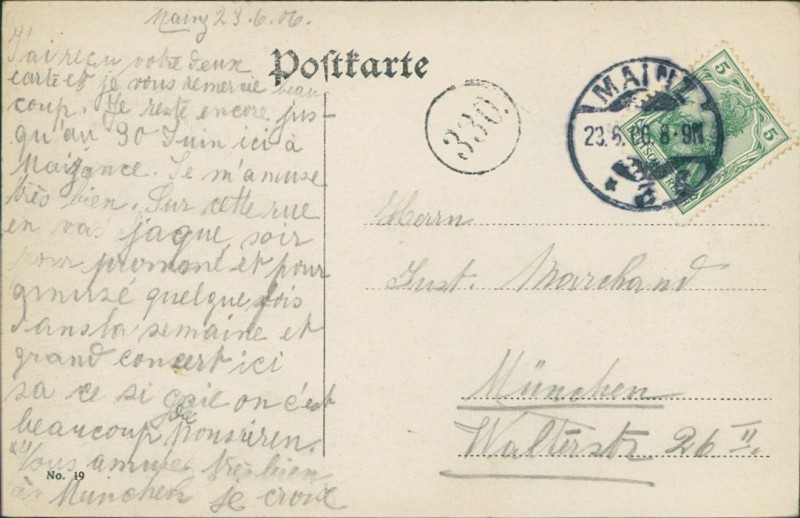 Mainz 23.6.06.
J'ai reçu votre deux
carte et je vous remercie beau
coup. Je reste encore jus-
qu'au 30 Juin ici à
Maizance. Je m'amuse
très bien. Sur cette rue
en vas jaque soir
pour promoné et pour
amusé quelque fois
dans la semaine et
grand concert ici
sa ce si gaie on c'est
beaucoup
Vous amusez très bien
à München je croix
No. 19
Postkarte
330.
MAINZ
23.6.06.8-9N
5
5
Herrn
Just. Marchand
München
Walterstr 26 II.